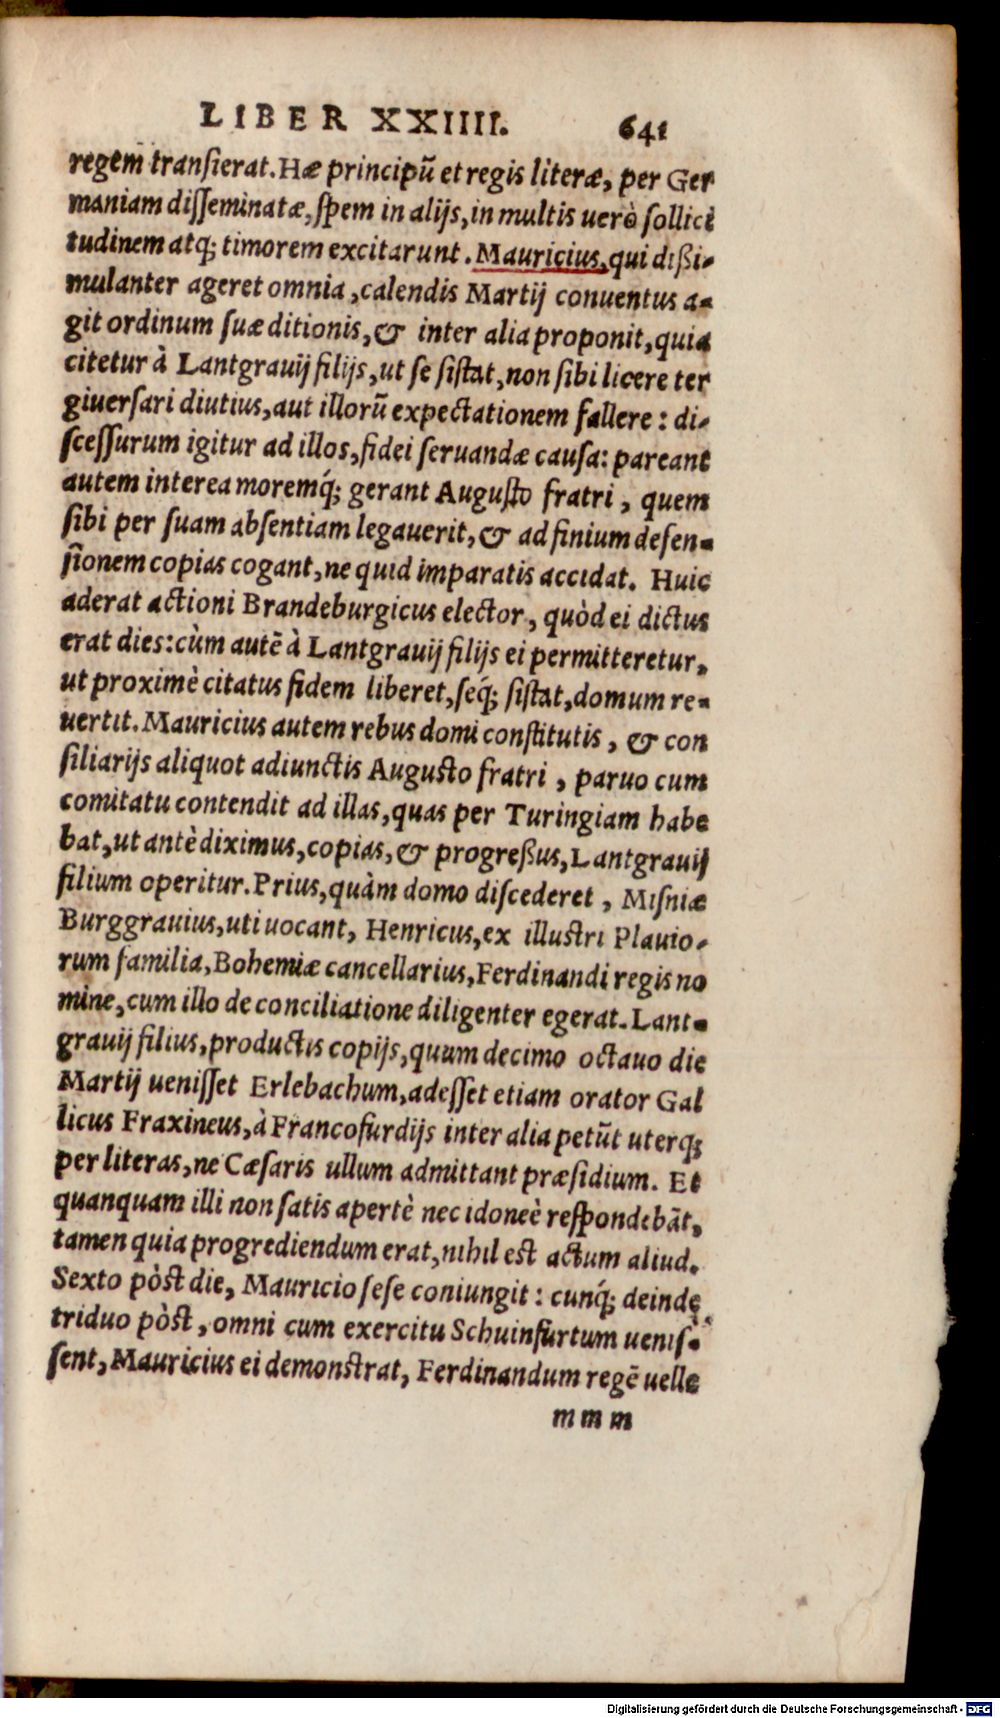 LIBER XXIIII. 641
regem transierat. Hæ principũ et regis literæ, per Ger
maniam disseminatæ, spem in alijs, in multis uerò sollici
tudinem atq; timorem excitarunt. Mauricius, qui dißi-
mulanter ageret omnia, calendis Martij conuentus a-
git ordinum suæ ditionis, & inter alia proponit, quia
citetur à Lantgrauij filijs, ut se sistat, non sibi licere ter
giuersari diutius, aut illorũ expectationem fallere: di-
scessurum igitur ad illos, fidei seruandæ causa: pareant
autem interea moremq́; gerant Augusto fratri, quem
sibi per suam absentiam legauerit, & ad finium defen-
sionem copias cogant, ne quid imparatis accidat. Huic
aderat actioni Brandeburgicus elector, quòd ei dictus
erat dies: cùm autẽ à Lantgrauij filijs ei permitteretur,
ut proximè citatus fidem liberet, seq́; sistat, domum re-
uertit. Mauricius autem rebus domi constitutis, & con
siliarijs aliquot adiunctis Augusto fratri, paruo cum
comitatu contendit ad illas, quas per Turingiam habe
bat, ut antè diximus, copias, & progreßus, Lantgrauij
filium operitur. Prius, quàm domo discederet, Misniæ
Burggrauius, uti uocant, Henricus, ex illustri Plauio-
rum familia, Bohemiæ cancellarius, Ferdinandi regis no
mine, cum illo de conciliatione diligenter egerat. Lant-
grauij filius, productis copijs, quum decimo octauo die
Martij uenisset Erlebachum, adesset etiam orator Gal
licus Fraxineus, à Francofurdijs inter alia petũt uterq;
per literas, ne Cæsaris ullum admittant præsidium. Et
quanquam illi non satis apertè nec idoneè respondebãt,
tamen quia progrediendum erat, nihil est actum aliud.
Sexto pòst die, Mauricio sese coniungit: cunq́; deinde
triduo pòst, omni cum exercitu Schuinfurtum uenis-
sent, Mauricius ei demonstrat, Ferdinandum regẽ uelle
m m m
Digitalisierung gefördert durch die Deutsche Forschungsgemeinschaft - DFG